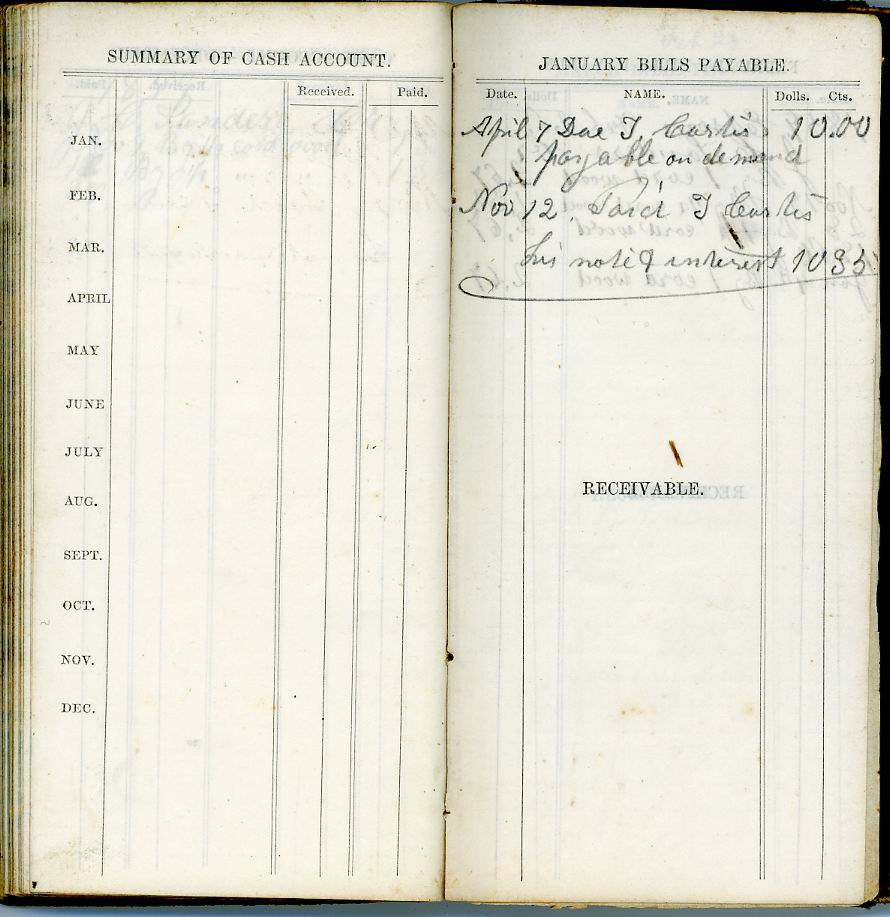 SUMMARY OF CASH ACCOUNT.
Received. Paid.
JAN.
FEB.
MAR.
APRIL
MAY
JUNE
JULY
AUG.
SEPT.
OCT.
NOV.
DEC.
JANUARY BILLS PAYABLE.
Date. NAME. Dolls. Cts.
April 7 Due T. Curtis 10.00
payable on demand
Nov 12. Paid T Curtis
his note & interest 10 35
RECEIVABLE.